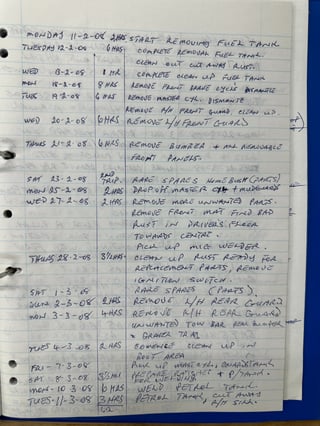 MONDAY 11-2-08 2HRS START REMOVING FUEL TANK
TUESDAY 12-2-08 6HRS. COMPLETE REMOVAL FUEL TANK.
CLEAN OUT CUT AWAY RUST.
WED 13-2-08 1HR COMPLETE CLEAN UP FUEL TANK
MON 18-2-08 9HRS REMOVE FRONT BRAKE CYCLE DISMANTE
TUES 19-2-08 6HRS REMOVE MASTER CYL. DISMANTE
REMOVE R/H FRONT GUARD, CLEAN UP
WED 20-2-08 6HRS REMOVE L/H FRONT GUARD
THURS 21-2-08 6HRS REMOVE BUMBER + ALL REMOVABLE
FRONT PANELS.
SAT 23-2-08 2ND TRIP. RARE SPARES HOMEBUSH (PARTS)
MON 25-2-08 2HRS DROP OFF MASTER + MUDGUARDS
WED 27-2-08 2HRS REMOVE MORE UNWANTED PARTS.
REMOVE FRONT MAT FIND BAD
RUST IN DRIVERS FLOOR
TOWARDS CENTRE.
PICK UP MIG WELDER.
THURS 28-2-08 3½HRS CLEAN UP RUST READY FOR
REPLACEMENT PARTS, REMOVE
IGNITION SWITCH.
SAT 1-3-08 RARE SPARES (PARTS).
SUN 2-3-08 2HRS REMOVE L/H REAR GUARD
MON 3-3-08 4HRS REMOVE R/H REAR GUARD
UNWANTED TOW BAR REAR BUMPER
+ GRAVER TRAY
TUES 4-3-08 2HRS COMMENCE CLEAN UP IN
BOOT AREA
FRI 7-3-08 PICK UP MAST CYL,
SAT 8-3-08 3½HRS PREPARE + P/TANK.
FOR WELDING
MON 10-3-08 6HRS WELD PETROL TANK.
TUES 11-3-08 3HRS PETROL TANK, CUT AWAY